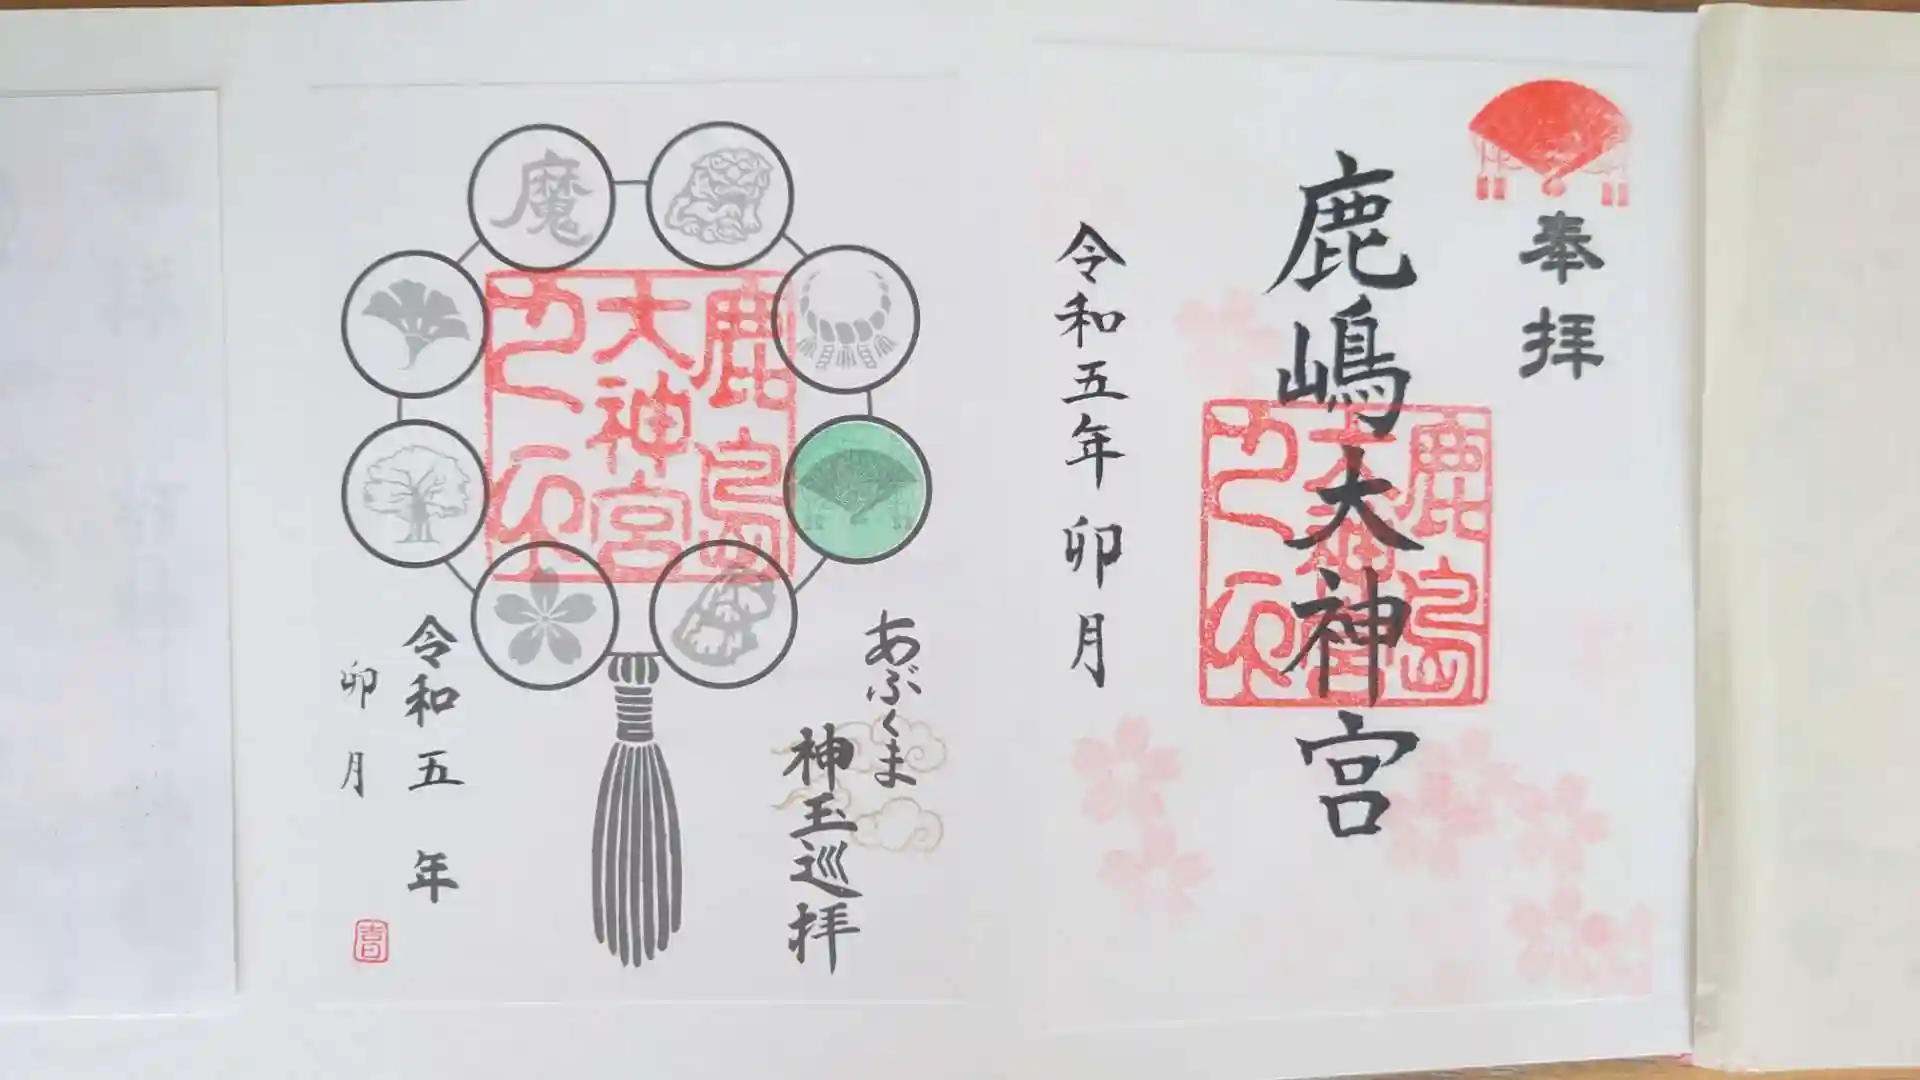 奉拝
鹿嶋大神宮
鹿島
大神宮
令和五年 卯月
あぶくま
神玉巡拝
魔
鹿島
大神宮
令和五年
卯月
吉日